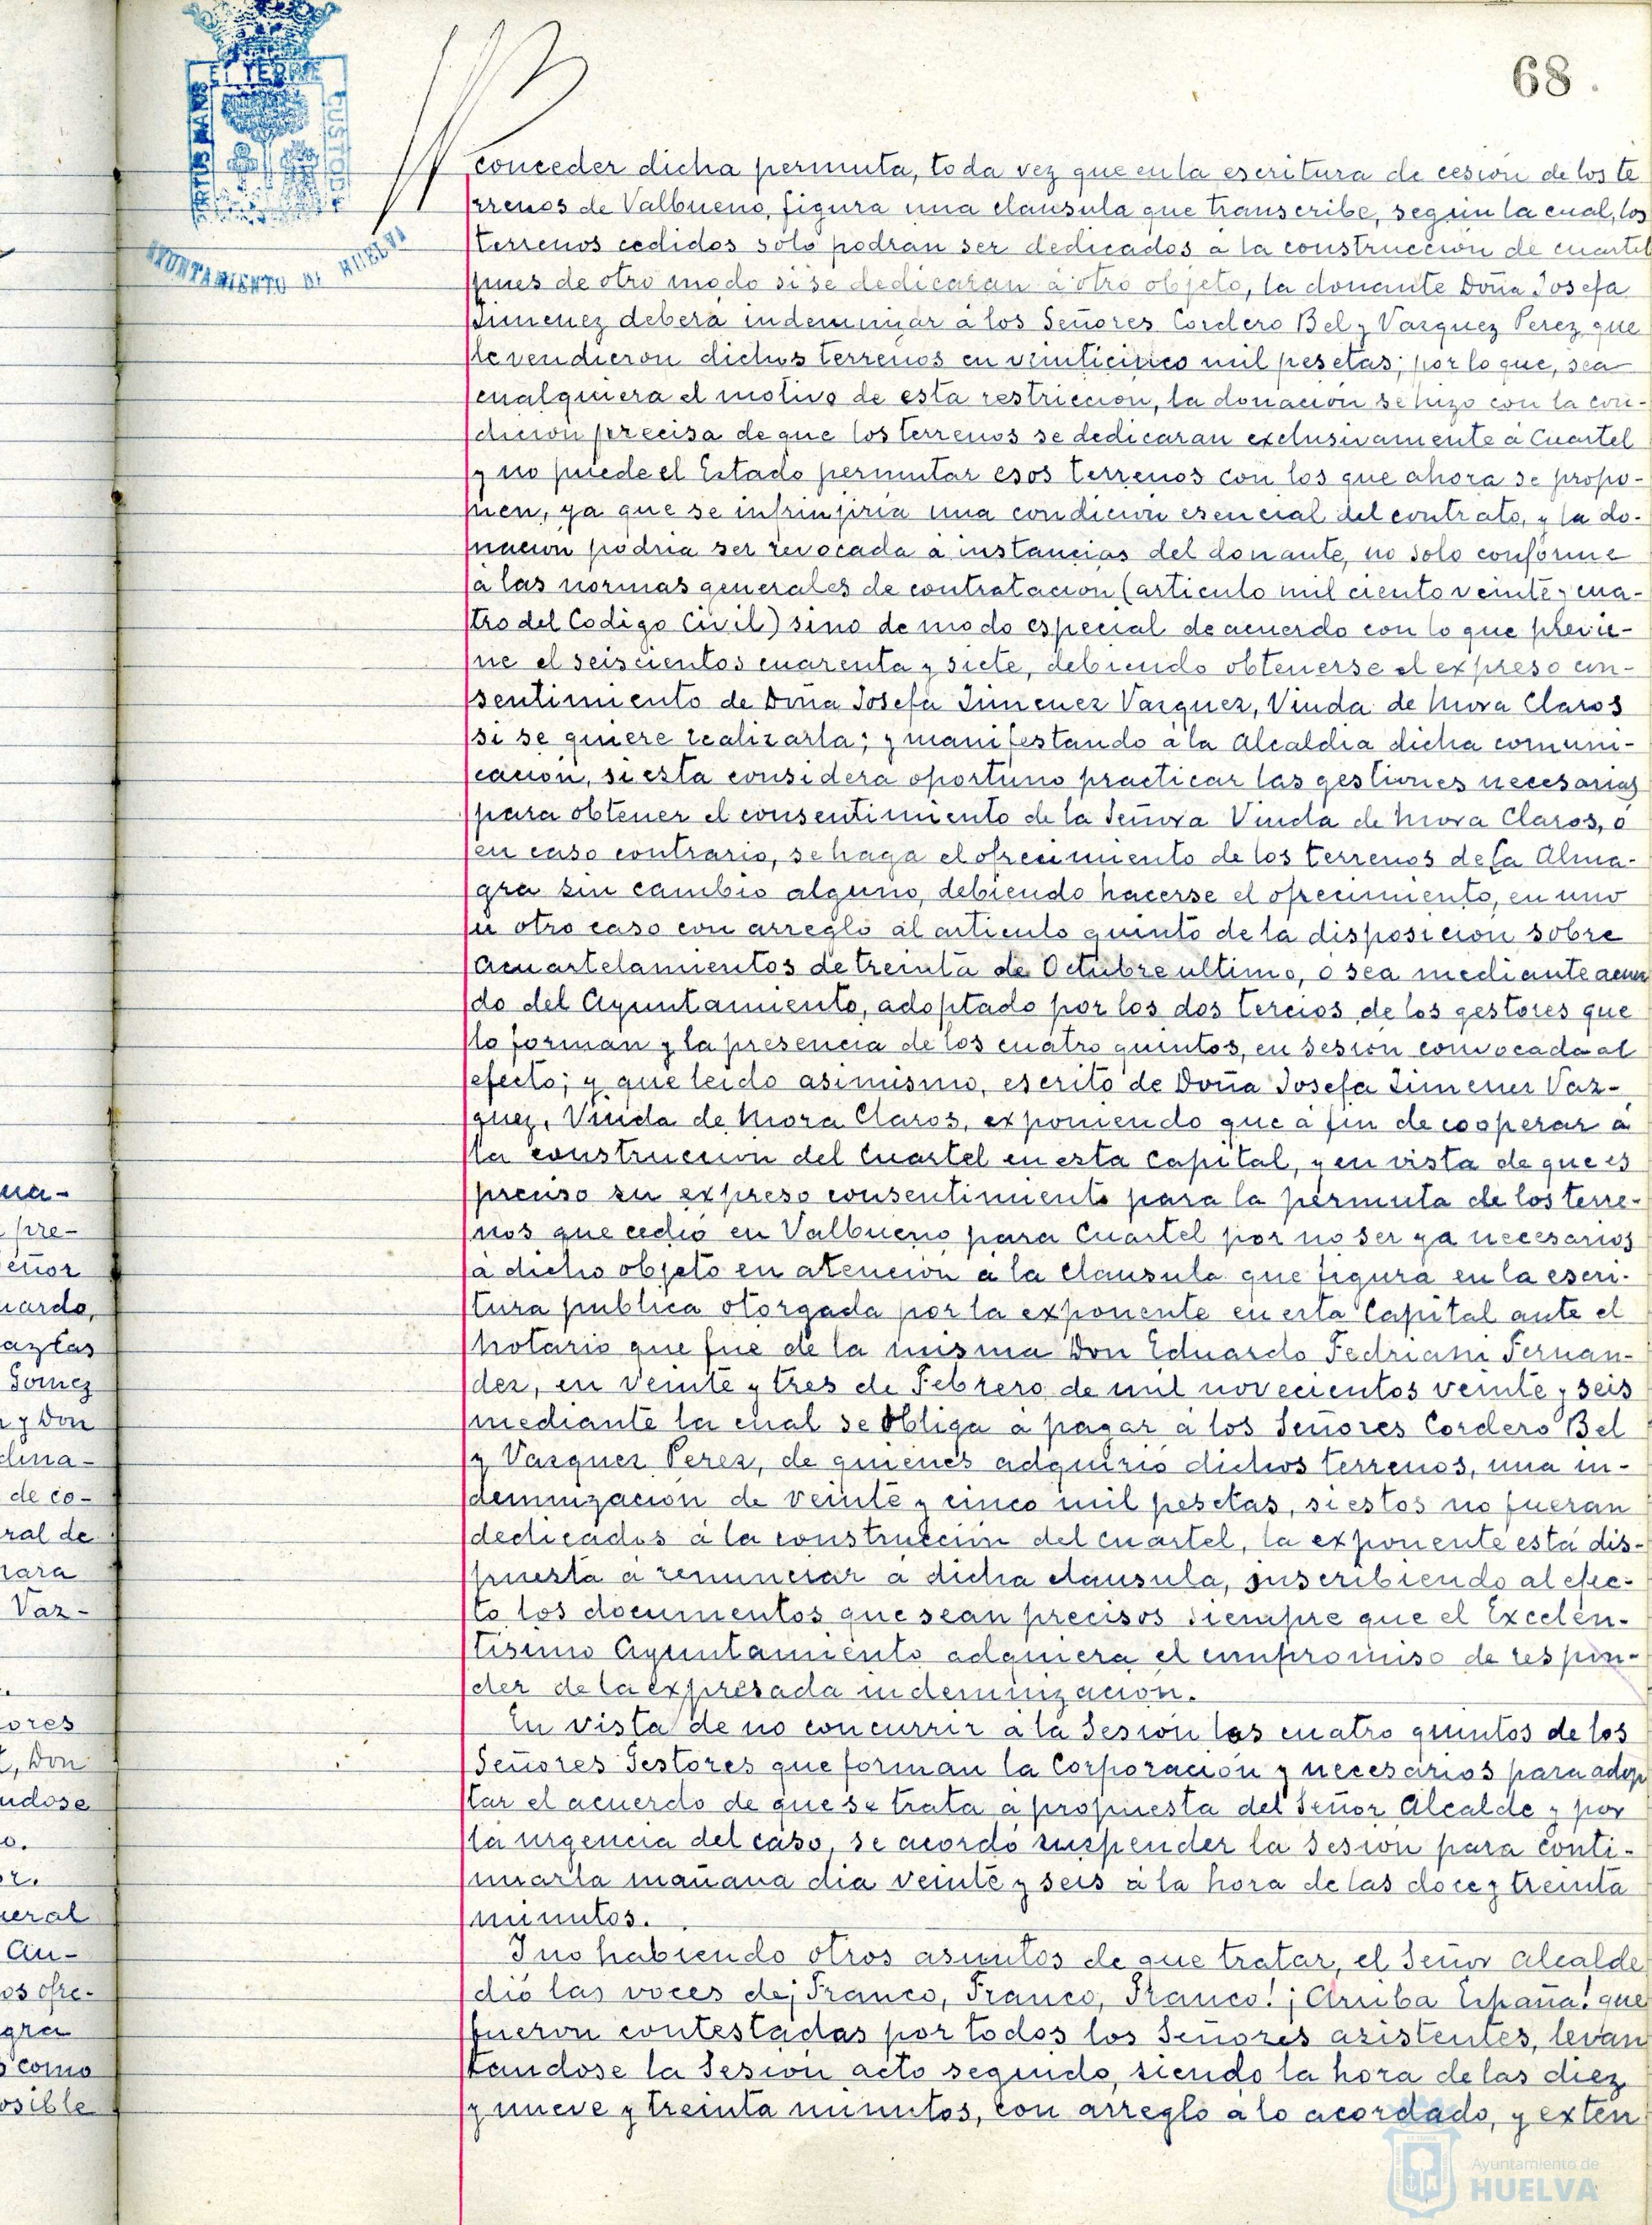 68.
PORTUS MARIS
ET TERRE
CUSTODIA
AYUNTAMIENTO DE HUELVA
conceder dicha permuta, toda vez que en la escritura de cesion de los te
rrenos de Valbueno, figura una clausula que transcribe, según la cual, los
terrenos cedidos solo podran ser dedicados a la construccion de cuartel
pues de otro modo si se dedicaran a otro objeto, la donante Doña Josefa
Jimenez deberá indemnizar a los Señores Cordero Bel y Vazquez Perez que
le vendieron dichos terrenos en veinticinco mil pesetas; por lo que, sea
cualquiera el motivo de esta restriccion, la donacion se hizo con la con-
dicion precisa de que los terrenos se dedicaran exclusivamente a Cuartel
y no puede el Estado permutar esos terrenos con los que ahora se propo-
nen, ya que se infrinjiria una condicion esencial del contrato, y la do-
nacion podria ser revocada a instancias del donante, no solo conforme
a las normas generales de contratacion (articulo mil ciento veinte y cua-
tro del Codigo Civil) sino de modo especial de acuerdo con lo que previe-
ne el seiscientos cuarenta y siete, debiendo obtenerse el expreso con-
sentimiento de Doña Josefa Jimenez Vazquez, Viuda de Mora Claros
si se quiere realizarla; y manifestando a la Alcaldia dicha comuni-
cacion, si esta considera oportuno practicar las gestiones necesarias
para obtener el consentimiento de la Señora Viuda de Mora Claros, o
en caso contrario, se haga el ofrecimiento de los terrenos de la Alma-
gra sin cambio alguno, debiendo hacerse el ofrecimiento, en uno
u otro caso con arreglo al articulo quinto de la disposicion sobre
Acuartelamientos de treinta de Octubre ultimo, o sea mediante acuer
do del Ayuntamiento, adoptado por los dos tercios de los gestores que
lo forman y la presencia de los cuatro quintos, en sesion convocada al
efecto; y que leido asimismo, escrito de Doña Josefa Jimenez Vaz-
quez, Viuda de Mora Claros, exponiendo que a fin de cooperar a
la construccion del Cuartel en esta Capital, y en vista de que es
preciso su expreso consentimiento para la permuta de los terre-
nos que cedió en Valbueno para Cuartel por no ser ya necesarios
a dicho objeto en atencion a la clausula que figura en la escri-
tura publica otorgada por la exponente en esta Capital ante el
Notario que fue de la misma Don Eduardo Fedriani Fernan-
dez, en veinte y tres de Febrero de mil novecientos veinte y seis
mediante la cual se obliga a pagar a los Señores Cordero Bel
y Vazquez Perez, de quienes adquirio dichos terrenos, una in-
demnizacion de veinte y cinco mil pesetas, si estos no fueran
dedicados a la construccion del cuartel, la exponente está dis-
puesta a renunciar a dicha clausula, suscribiendo al efec-
to los documentos que sean precisos siempre que el Excelen-
tisimo Ayuntamiento adquiera el compromiso de respon-
der de la expresada indemnizacion.
En vista de no concurrir a la Sesion los cuatro quintos de los
Señores Gestores que forman la Corporacion y necesarios para adop
tar el acuerdo de que se trata a propuesta del Señor Alcalde y por
la urgencia del caso, se acordó suspender la Sesion para conti-
nuarla mañana dia veinte y seis a la hora de las doce y treinta
minutos.
Y no habiendo otros asuntos de que tratar, el Señor Alcalde
dió las voces de ¡Franco, Franco, Franco! ¡Arriba España! que
fueron contestadas por todos los Señores asistentes, levan
tandose la Sesion acto seguido, siendo la hora de las diez
y nueve y treinta minutos, con arreglo a lo acordado, y exten
ua-
pre-
eñor
uardo,
az las
Gomez
y Don
dina-
de co-
ral de
nara
Vaz-
ores
, Don
ndose
o.
r.
neral
Au-
os ofre-
gra
o como
osible
Ayuntamiento de
HUELVA